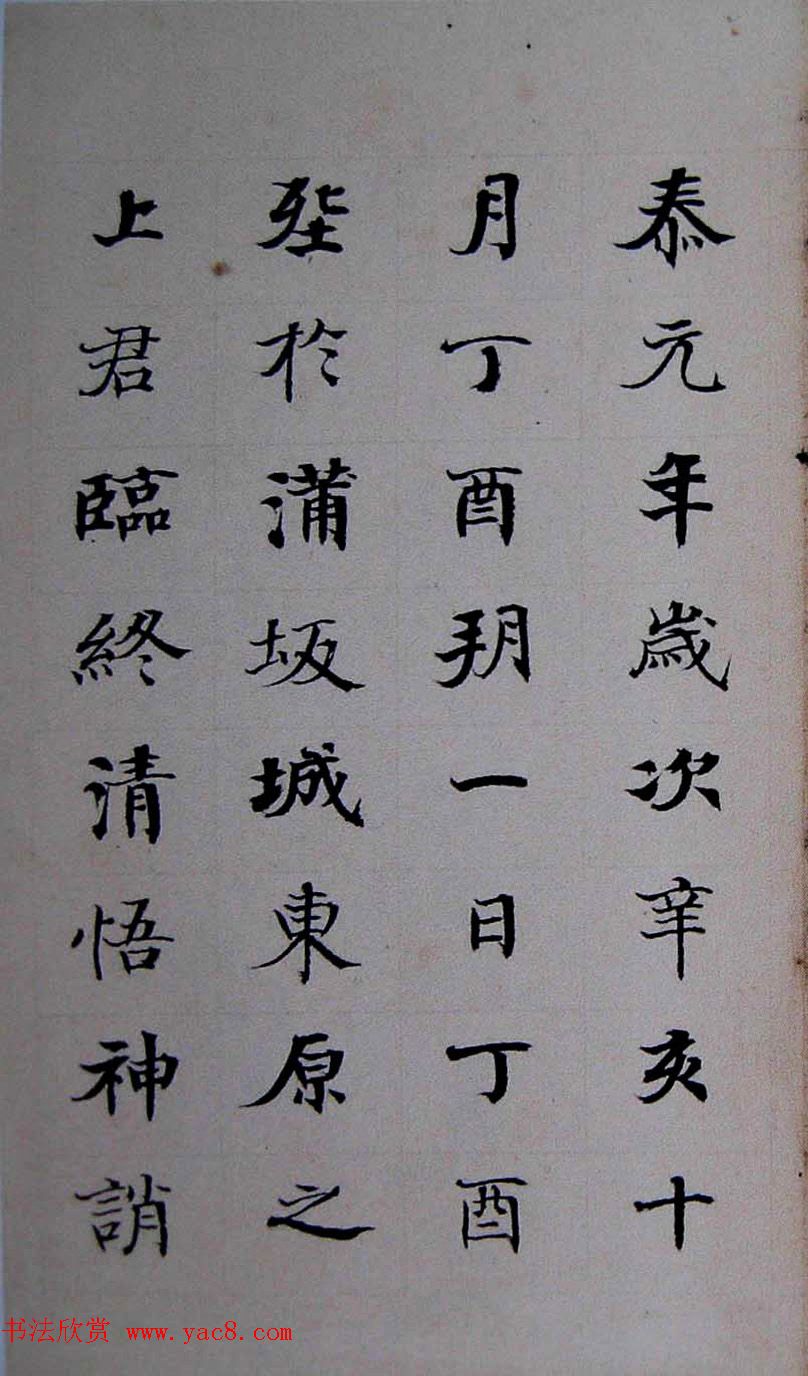 泰元年歲次辛亥十
月丁酉朔一日丁酉
葬於蒲坂城東原之
上君臨終清悟神誚
书法欣赏 www.yac8.com